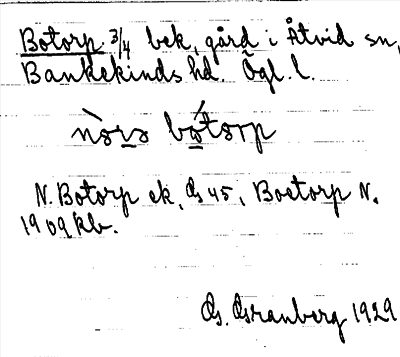 Botorp 3/4 bek, gård i Åtvid sn,
Bankekinds hd. Ögl. l.
bótorp
N. Botorp ek, Gs 45, Bostorp N.
1909 kb.
G. Granberg 1929